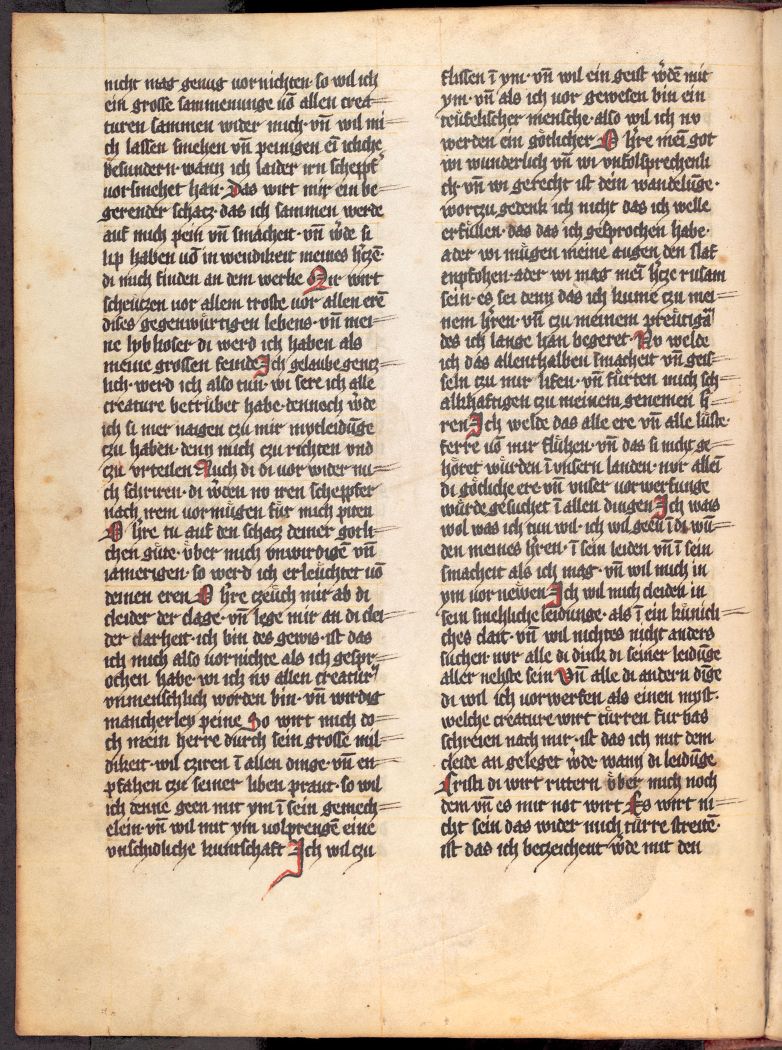 nicht mag genug vornichten· so wil ich
ein grosse sammenunge vō allen crea-
turen sammen wider mich· vn̄ wil mi
ch lassen smehen vn̄ peinigen eī icliche
besundern· wann ich laider irn schepf͛
vorsmehet han· Das wirt mir ein be-
gerender schacz· das ich sammen werde
auf mich pein vn̄ smacheit· vn̄ w͛de si
lip haben vō in wendikeit meines h͛czē·
di mich finden an dem werke Mir wirt
scheuczen vor allem troste vor allen erē
dises gegenwürtigen lebens· vn̄ mei-
ne lybkoser di werd ich haben als
meine grossen feinde Ich gelaube gencz-
lich· werd ich also tun· wi sere ich alle
creature betrübet habe· dennoch w͛de
ich si mer naigen czu mir mytleidūge
czu haben· denn mich czu richten vnd
czu vrteilen Auch di di vor wider mi-
ch schriren· di w͛den no iren schepfer
nach irem vormügen für mich piten
O h͛re tu auf den schacz deiner gotli-
chen güte· über mich vnwirdigen vn̄
iamerigen· so werd ich erleüchtet vō
deinen eren O h͛re czeüch mir ab di
cleider der clage· vn̄ lege mir an di clei-
der der clarheit· ich bin des gewis· ist das
ich mich also vornichte als ich gespr-
ochen habe· wi ich no allen creatur͛
vnmenschlich worden bin· vn̄ wirdig
mancherley peine So wirt mich do-
ch mein herre durch sein grosse mil-
dikeit· wil cziren ī allen dinge· vn̄ en-
pfahen czu seiner liben praut· so wil
ich denne geen mit ym ī sein gemech-
elein· vn̄ wil mit ym volprengē eine
vnschidliche kuntschaft Ich wil czu
flissen ī ym· vn̄ wil ein geist w͛dē mit
ym· vn̄ als ich vor gewesen bin ein
teüfelischer mensche· also wil ich no
werden ein gotlicher O h͛re meī got
wi wunderlich vn̄ wi vnvolsprechenli
ch· vn̄ wi gerecht ist dein wandelūge·
worczu gedenk ich nicht das ich welle
erfüllen· das das ich gesprochen habe·
ader wi mügen meine augen den slaf
enpfohen· ader wi mag meī h͛cze rusam
sein· es sei denn das ich kume czu mei-
nem h͛ren· vn̄ czu meinem preütigā
des ich lange han begeret No welde
ich das allenthalben smacheit vn̄ geis-
seln czu mir lifen· vn̄ fürten mich sch-
alkhaftigen czu meinem genemen h͛-
ren Ich welde das alle ere vn̄ alle lüste·
ferre vō mir flühen· vn̄ das si nicht ge-
höret würden ī vnsern landen· nor allein
di gotliche ere· vn̄ vnser vorwerfunge
würde gesuchet ī allen dingen Ich wais
wol was ich tun wil· ich wil geen ī di wū-
den meines h͛ren· ī sein leiden vn̄ ī sein
smacheit als ich mag· vn̄ wil mich in
ym vornewen Ich wil mich cleiden in
sein smehliche leidunge· als ī ein künicli-
ches clait· vn̄ wil nichtes nicht anders
suchen· nor alle di dink di seiner leidūge
aller nehste sein Vn̄ alle di andern dīge
di wil ich vorwerfen als einen myst·
welche creature wirt türren furbas
schreien nach mir· ist das ich mit dem
cleide an geleget w͛de wann di leidūge
Cristi di wirt rittern über mich noch
dem vn̄ es mir not wirt Es wirt ni-
cht sein das wider mich türre streitē·
ist das ich beczeichent w͛de mit den